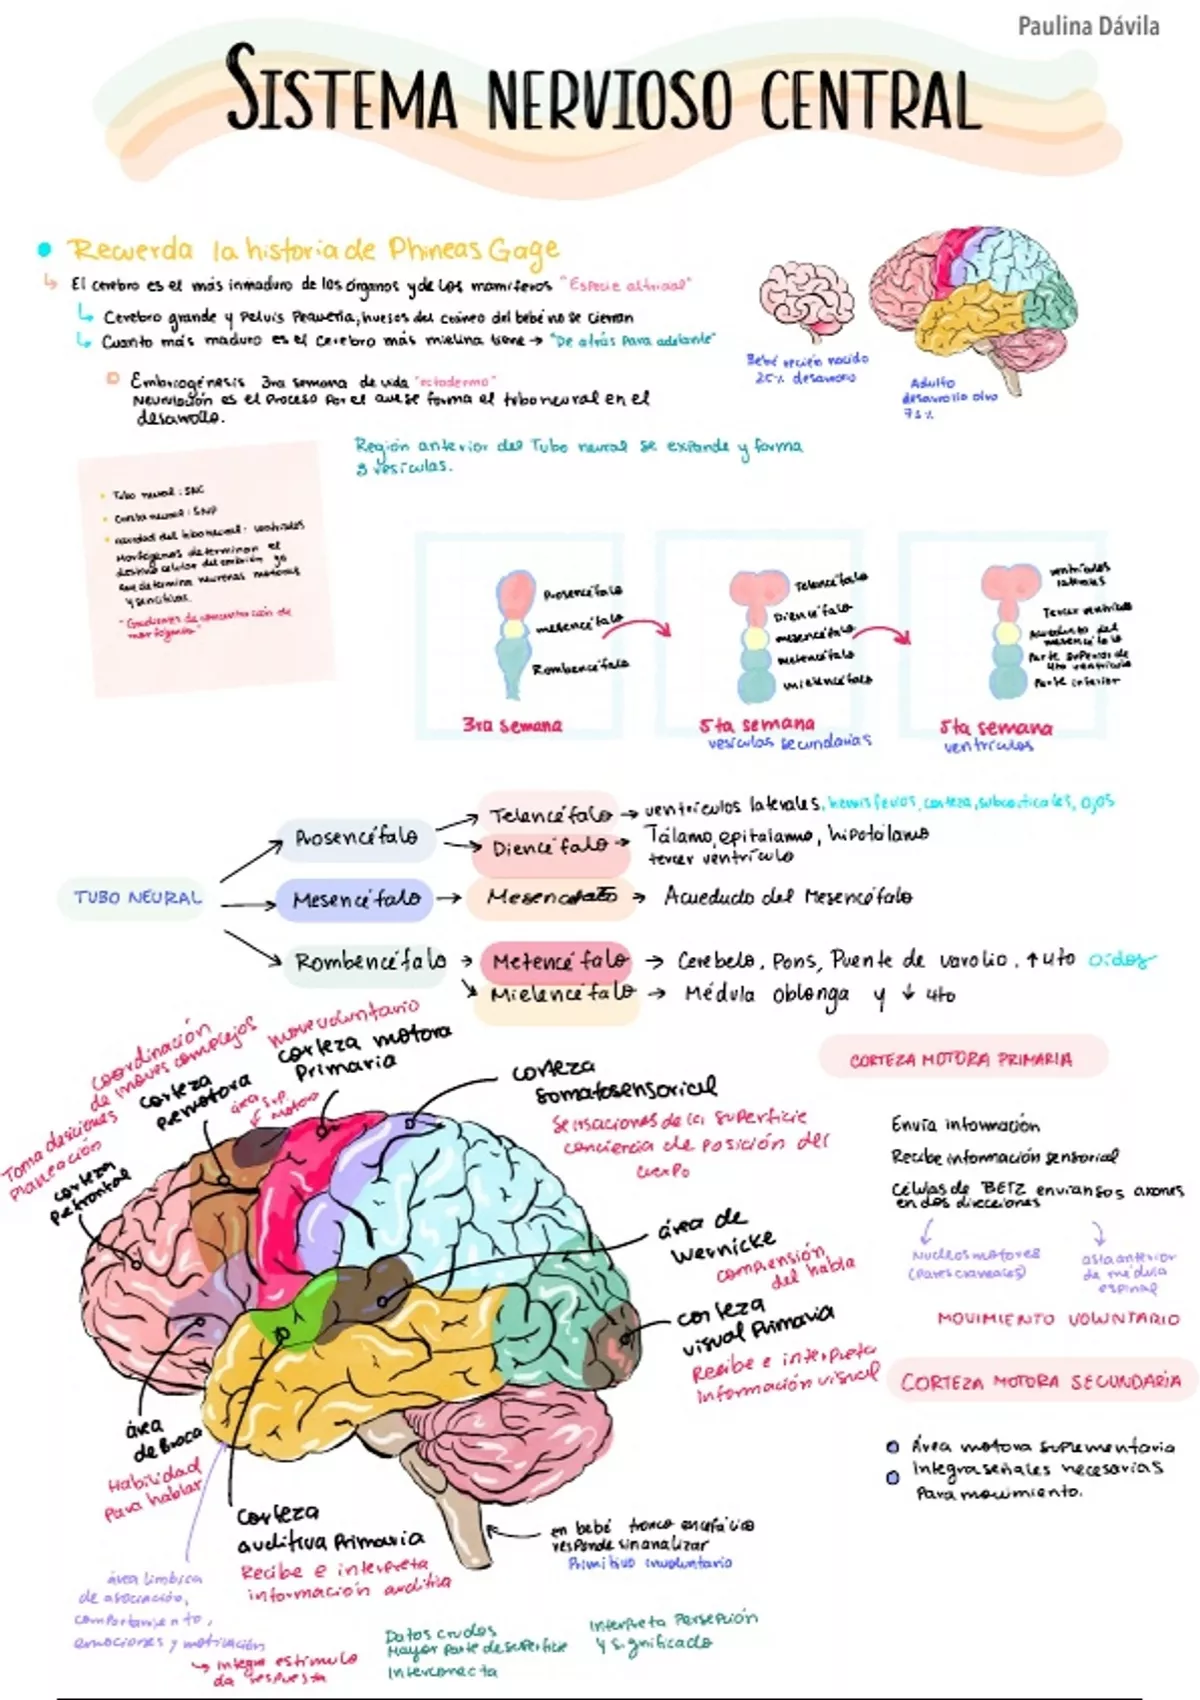 Paulina Dávila
SISTEMA NERVIOSO CENTRAL
Recuerda la historia de Phineas Gage
El cerebro es el más inmaduro de los órganos y de los mamíferos "Especie altricial"
Cerebro grande y Pelvis Pequeña, huesos del cráneo del bebé no se cierran
Cuanto más maduro es el cerebro más mielina tiene → "De atrás Para adelante"
Embriogénesis 3ra semana de vida "ectodermo"
Neurulación es el Proceso Por el que se forma el tubo neural en el
desarrollo.
Bebé recién nacido
25% desarrollo
Adulto
desarrollo otro
75%
Región anterior del Tubo neural se expande y forma
3 vesículas.
Tubo neural: SNC
Cresta neural: SNP
cavidad del tubo neural: ventrículos
Morfógenos determinan el
destino celular del embrión ya
que determina neuronas motoras
y sensitivas.
"Gradientes de concentración de
morfógenos"
Prosencéfalo
mesencéfalo
Rombencéfalo
3ra semana
Telencéfalo
Diencéfalo
mesencéfalo
metencéfalo
mielencéfalo
5ta semana
vesículas secundarias
ventrículos
laterales
Tercer ventrículo
Acueducto del
mesencéfalo
Parte superior de
4to ventrículo
Parte inferior
5ta semana
ventrículos
TUBO NEURAL
Prosencéfalo
Telencéfalo → ventrículos laterales, hemisferios, corteza, subcorticales, ojos
Diencéfalo → Tálamo, epitalamo, hipotálamo
tercer ventrículo
Mesencéfalo → Mesencéfalo → Acueducto del Mesencéfalo
Rombencéfalo → Metencéfalo → Cerebelo, Pons, Puente de varolio, ↑ 4to oídos
Mielencéfalo → Médula oblonga y ↓ 4to
Coordinación
de moves complejos
corteza
Premotora
área sup.
motora
move voluntario
corteza motora
Primaria
Toma desiciones
Planeación
corteza
Prefrontal
corteza
somatosensorial
Sensaciones de la superficie
conciencia de posición del
cuerpo
área de
Wernicke
comprensión
del habla
corteza
visual Primaria
Recibe e interpreta
información visual
área
de Broca
Habilidad
Para hablar
corteza
auditiva Primaria
Recibe e interpreta
información auditiva
área límbica
de asociación,
comportamiento,
emociones y motivación
↳ integra estímulo
da respuesta
en bebé tronco encefálico
responde sin analizar
Primitivo involuntario
Datos crudos
Mayor parte de superficie
Interconecta
Interpreta Persepción
y significado
CORTEZA MOTORA PRIMARIA
Envía información
Recibe información sensorial
Células de BETZ envían sus axones
en dos direcciones
Nucleos motores
(Pares craneales)
asta anterior
de médula
espinal
MOVIMIENTO VOLUNTARIO
CORTEZA MOTORA SECUNDARIA
Área motora suplementaria
Integra señales necesarias
Para movimiento.